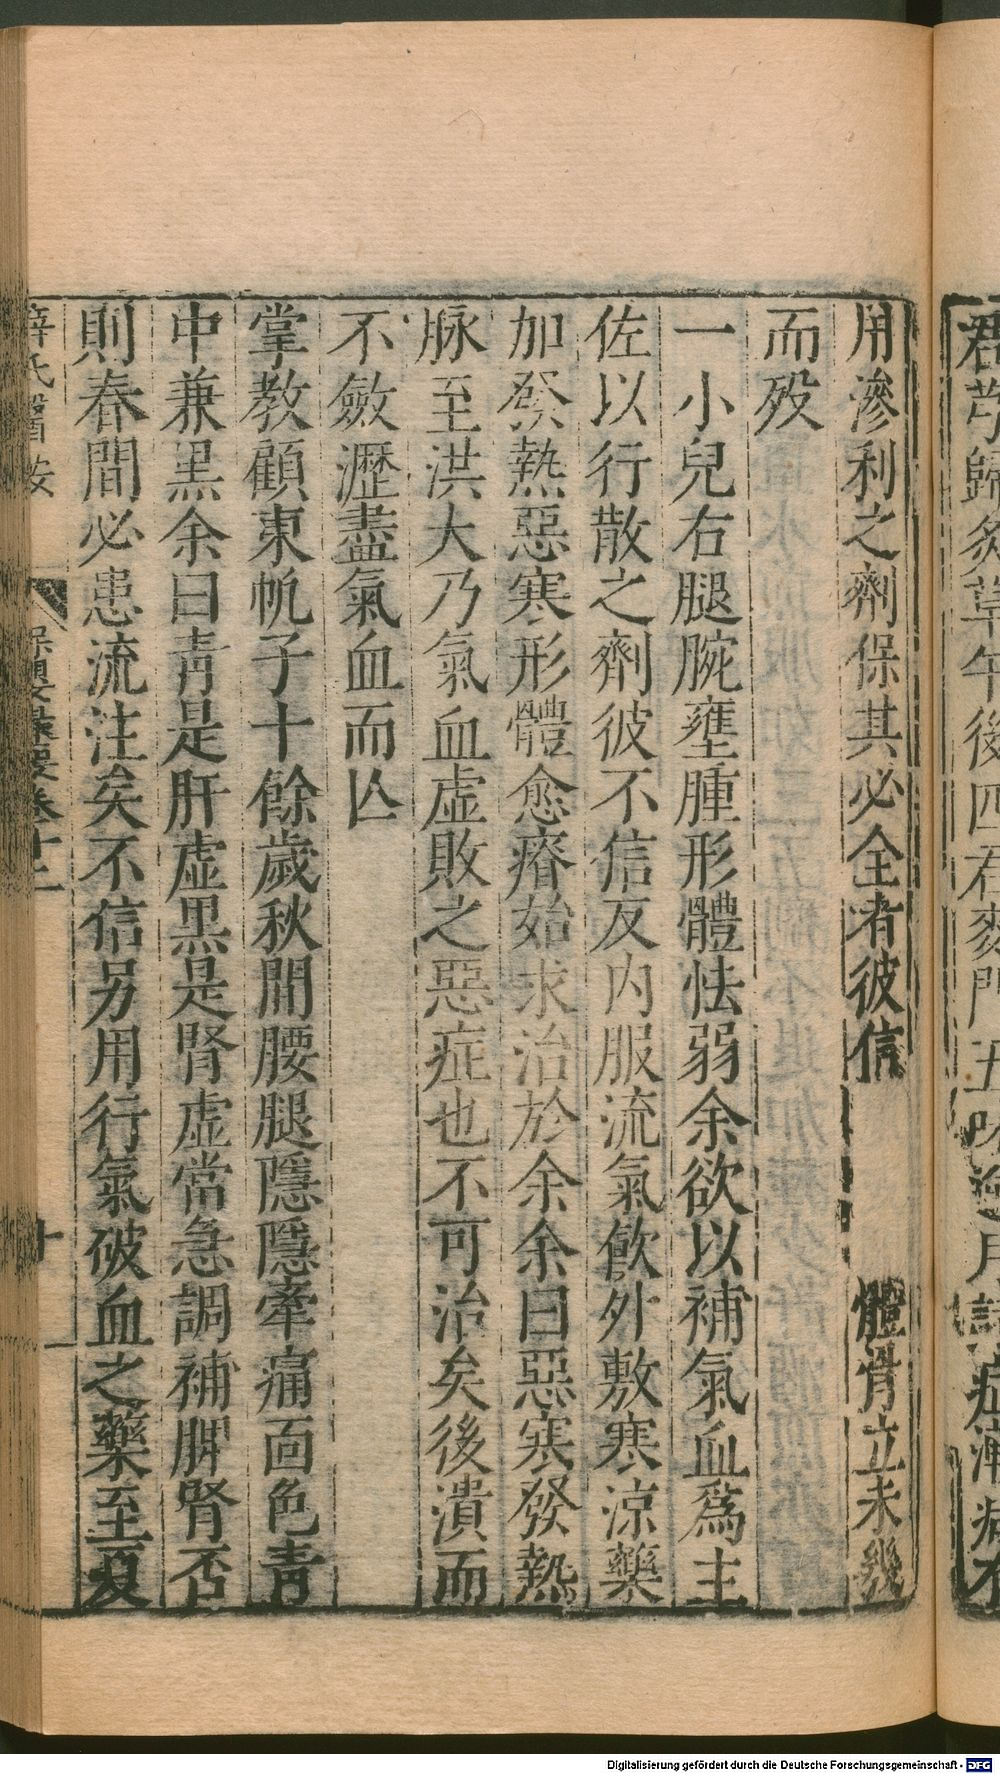 用滲利之劑保其必全者彼信
體骨立未幾
而歿
一小兒右腿腕壅腫形體怯弱余欲以補氣血爲主
佐以行散之劑彼不信反内服流氣飮外敷寒涼藥
加發熱惡寒形體愈瘠始求治於余余曰惡寒發熱
脉至洪大乃氣血虚敗之惡症也不可治矣後潰而
不斂瀝盡氣血而亾
掌教顧東帆子十餘歲秋間腰腿隱隱牽痛面色青
中兼黒余曰靑是肝虚黒是腎虚當急調補脾腎否
則春間必患流注矣不信另用行氣破血之藥至夏
薛氏醫按
保嬰撮要卷十二
十一
歸炙草午後四君麥門五味
Digitalisierung gefördert durch die Deutsche Forschungsgemeinschaft - DFG